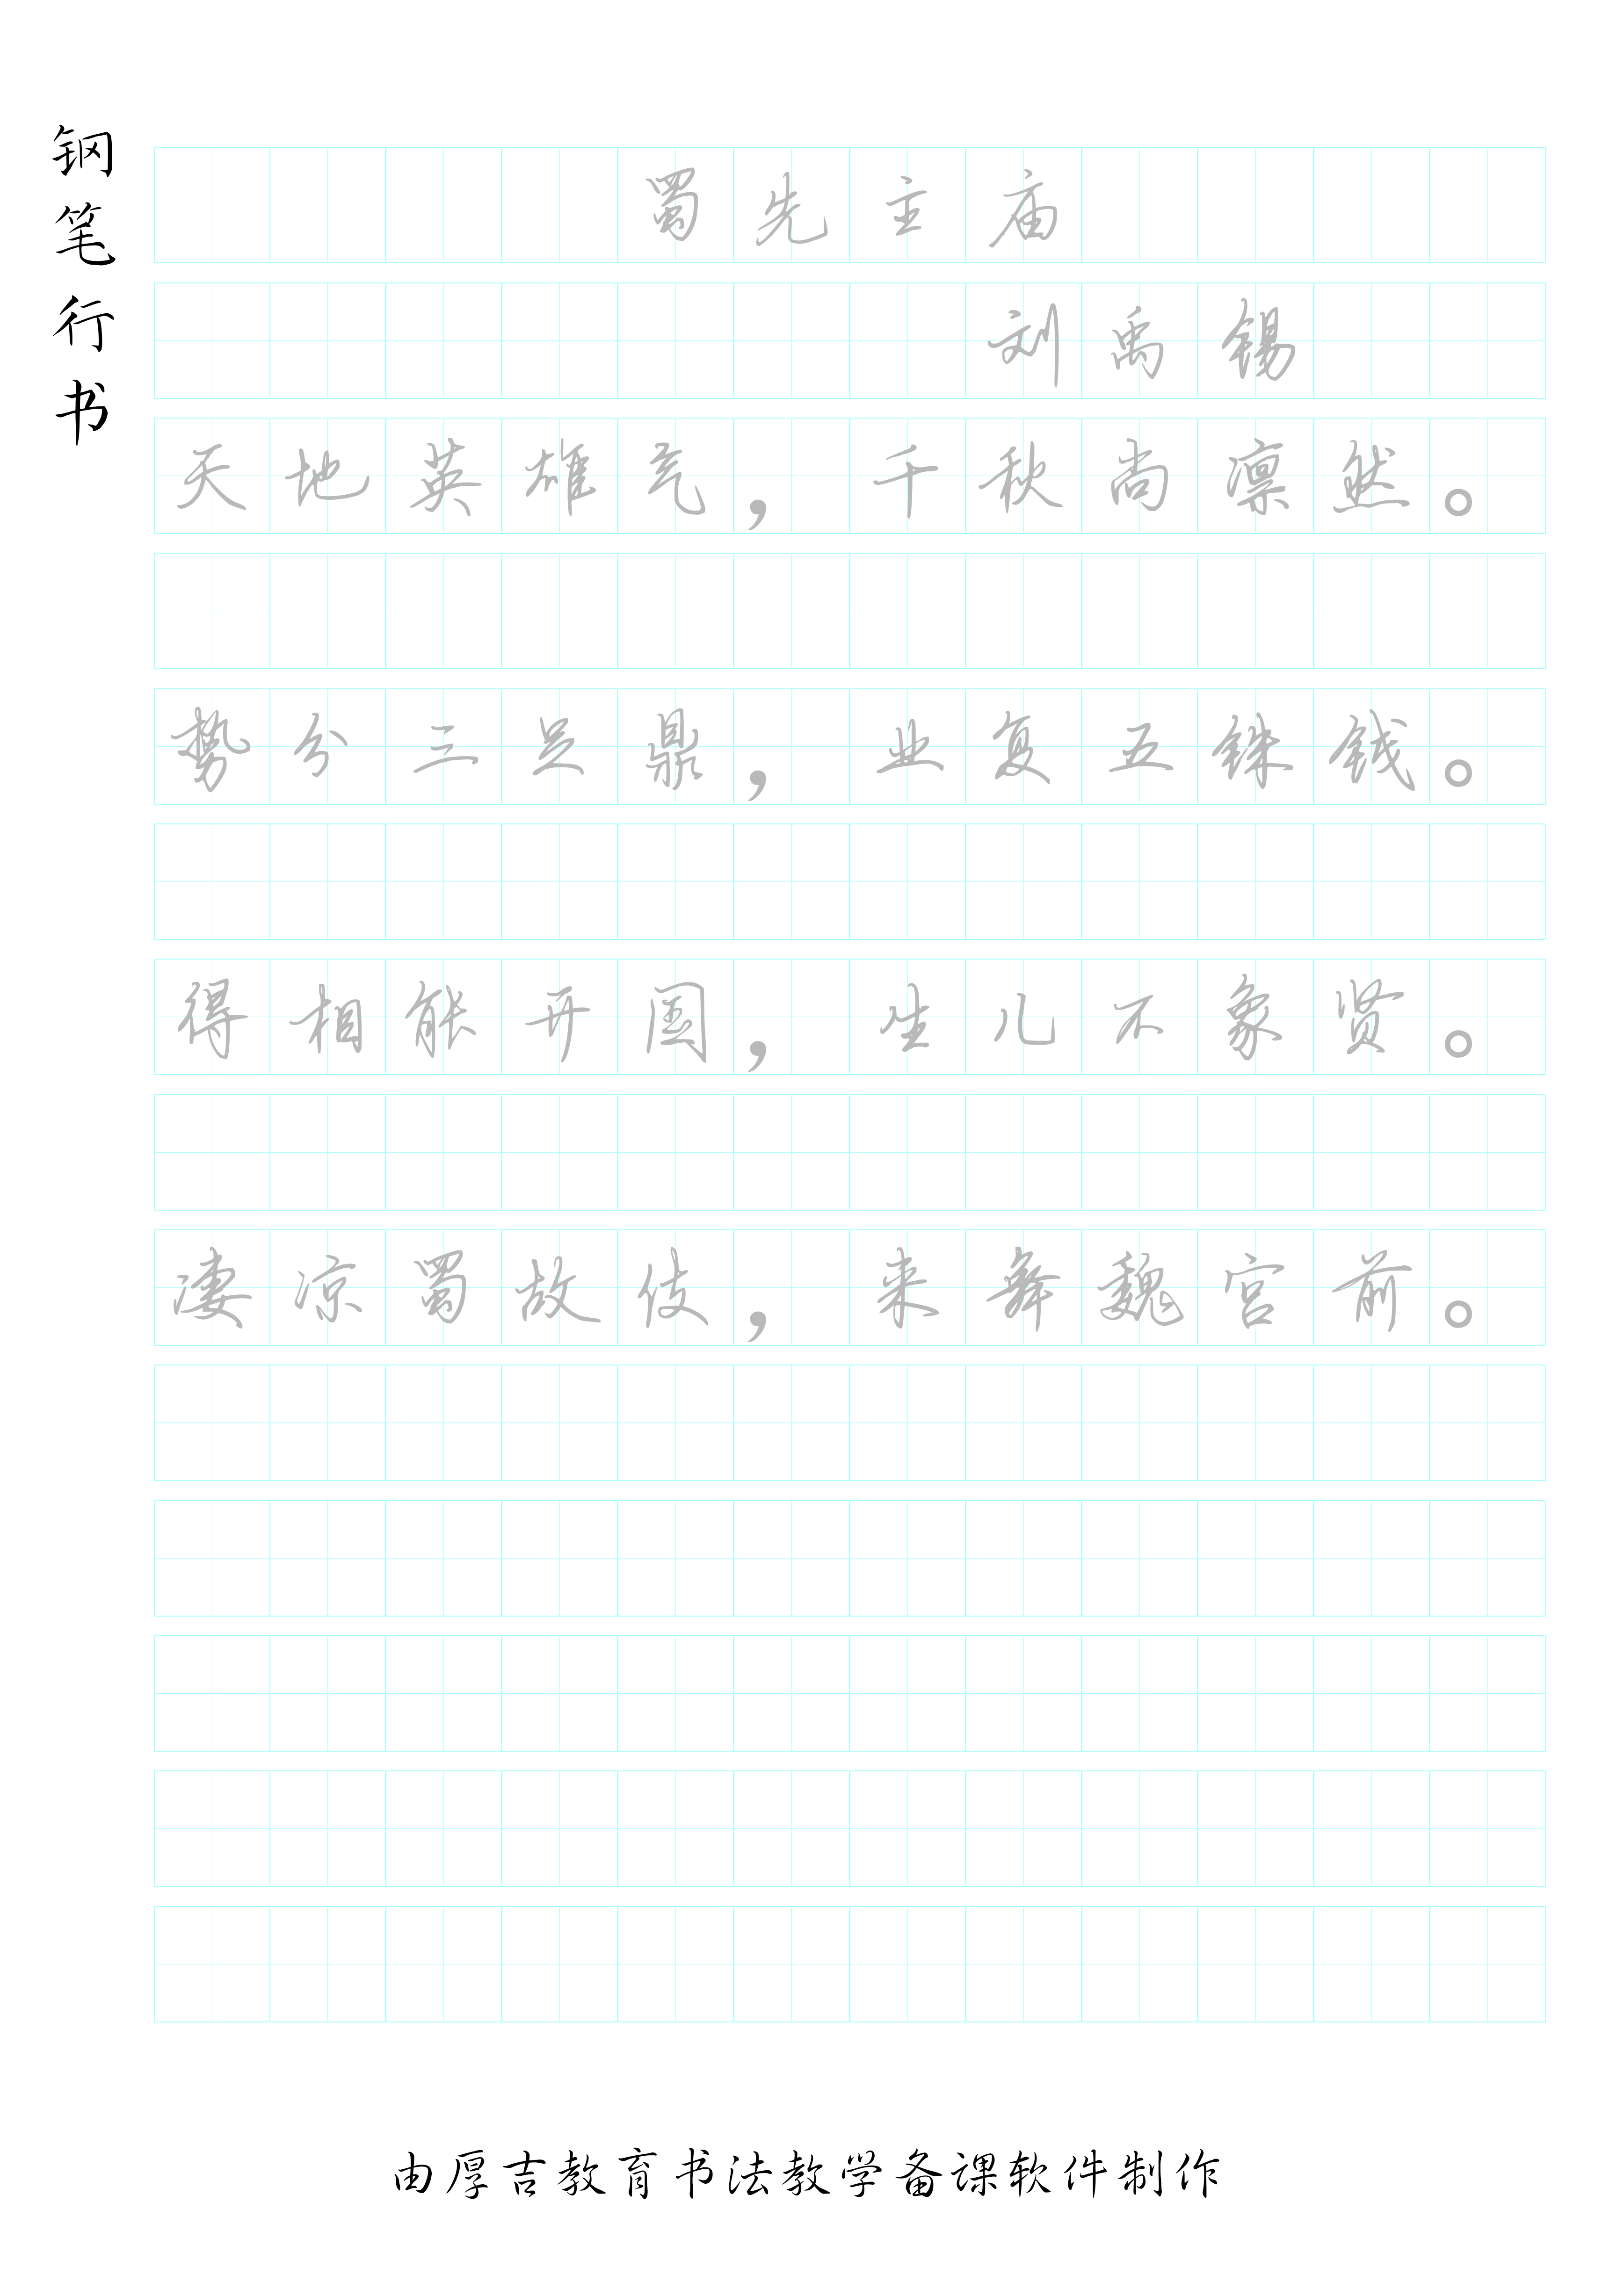 钢笔行书
蜀先主庙
刘禹锡
天地英雄气，千秋尚凛然。
势分三足鼎，业复五铢钱。
得相能开国，生儿不象贤。
凄凉蜀故伎，来舞魏宫前。
由厚吉教育书法教学备课软件制作